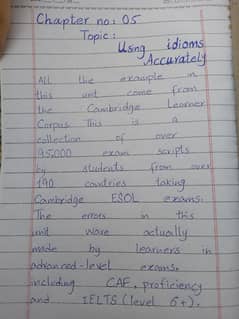 Chapter no: 05
Topic:
Using idioms
Accurately
All the example in
this unit come from
the Cambridge Learner
Corpus This is a
collection of over
95000 exam scripts
by students from over
190 countries taking
Cambridge ESOL exams.
The errors in this
unit ware actually
made by learners in
advanced-level exams.
including CAE, proficiency
and IELTS (level 6+).